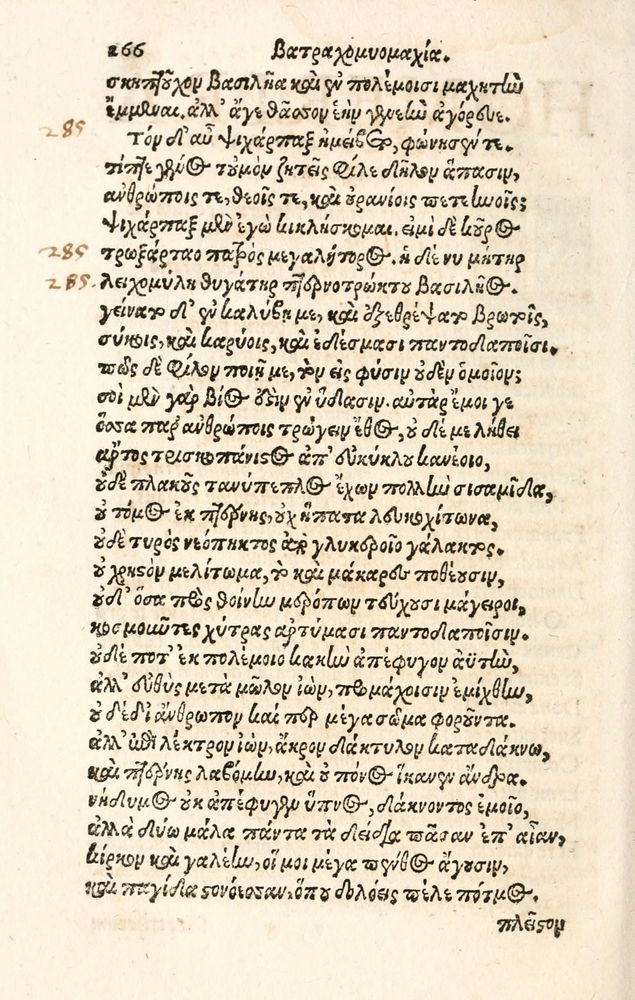 266 Βατραχομυομαχία.
σκηπτοῦχον βασιλῆα καὶ ἐν πολέμοισι μαχητὼ
ἔμμεναι. ἀλλ' ἄγε θᾶσσον ἑὴν γενεὼ ἀγόρευε.
285
Τόν δ' αὖ ψιχάρπαξ ἠμείβετο, φώνησέν τε.
τίπτε γένος τοὐμὸν ζητεῖς φίλε δῆλον ἅπασιν,
ἀνθρώποις τε, θεοῖς τε, καὶ οὐρανίοις πετεινοῖς;
ψιχάρπαξ μὲν ἐγὼ κικλήσκομαι. εἰμὶ δὲ κοῦρος
285 τρωξάρταο πατρὸς μεγαλήτορος. ἡ δέ νυ μήτηρ
285. λειχομύλη θυγάτηρ πτερνοτρώκτου βασιλῆος.
γείνατο δ' ἐν καλύβῃ με, καὶ ἐξεθρέψατο βρωτοῖς,
σύκοις, καὶ καρύοις, καὶ ἐδέσμασι παντοδαποῖσι.
πῶς δὲ φίλον ποιῇ με, τὸν εἰς φύσιν οὐδὲν ὁμοῖον;
σοὶ μὲν γὰρ βίος ἐστὶν ἐν ὕδασιν. αὐτὰρ ἔμοι γε
ὅσσα παρ' ἀνθρώποις τρώγειν ἔθος, οὐδέ με λήθει
ἄρτος τρισκοπάνιστος ἀπ' εὐκύκλου κανέοιο,
οὐδὲ πλακοῦς τανύπεπλος ἔχων πολλὼ σισαμίδα,
οὐ τόμος ἐκ πτέρνης, οὐχ ἥπατα λευκοχίτωνα,
οὐδὲ τυρὸς νεόπηκτος ἀπὸ γλυκεροῖο γάλακτος.
οὐ χρηστὸν μελίτωμα, τὸ καὶ μάκαρες ποθέουσιν,
οὐδ' ὅσα πρὸς θοίνὼ μερόπων τεύχουσι μάγειροι,
κοσμοιῶτες χύτρας ἀρτύμασι παντοδαποῖσιν.
οὐδέ ποτ' ἐκ πολέμοιο κακὼ ἀπέφυγον ἀϋτὼ,
ἀλλ' εὐθὺς μετὰ μῶλον ἰὼν, προμάχοισιν ἐμίχθὼ,
οὐ δέδι' ἄνθρωπον καί περ μέγα σῶμα φοροῦντα.
ἀλλ' ἐπὶ λέκτρον ἰὼν, ἄκρον δάκτυλον καταδάκνω,
καὶ πτέρνης λαβόμὼ, καὶ οὐ πόνος ἵκανεν ἄνδρα.
νήδυμος οὐκ ἀπέφυγεν ὕπνος, δάκνοντος ἐμοῖο,
ἀλλὰ δύω μάλα πάντα τὰ δείδια πᾶσαν ἐπ' αἶαν,
κίρκον καὶ γαλέὼ, οἵ μοι μέγα πένθος ἄγουσιν,
καὶ παγίδα στονόεσσαν, ὅπου δολόεις πέλε πότμος.
πλεῖστον